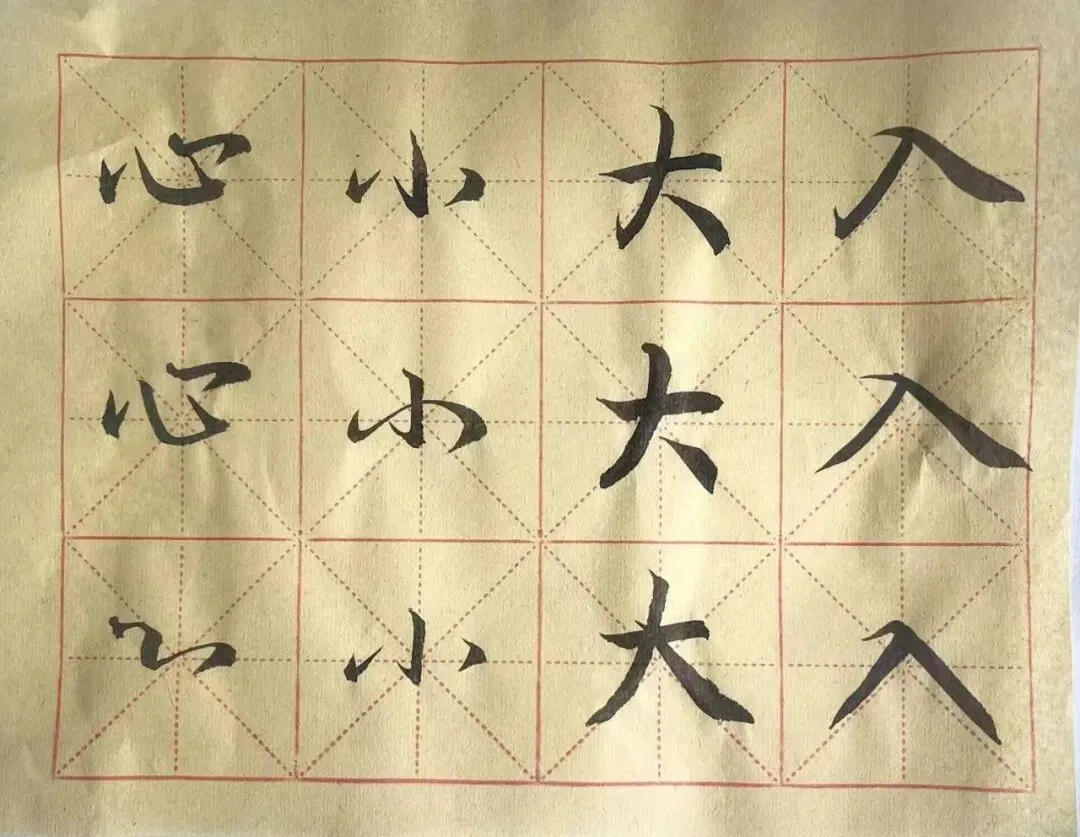 入入入
大大大
小小小
心心心